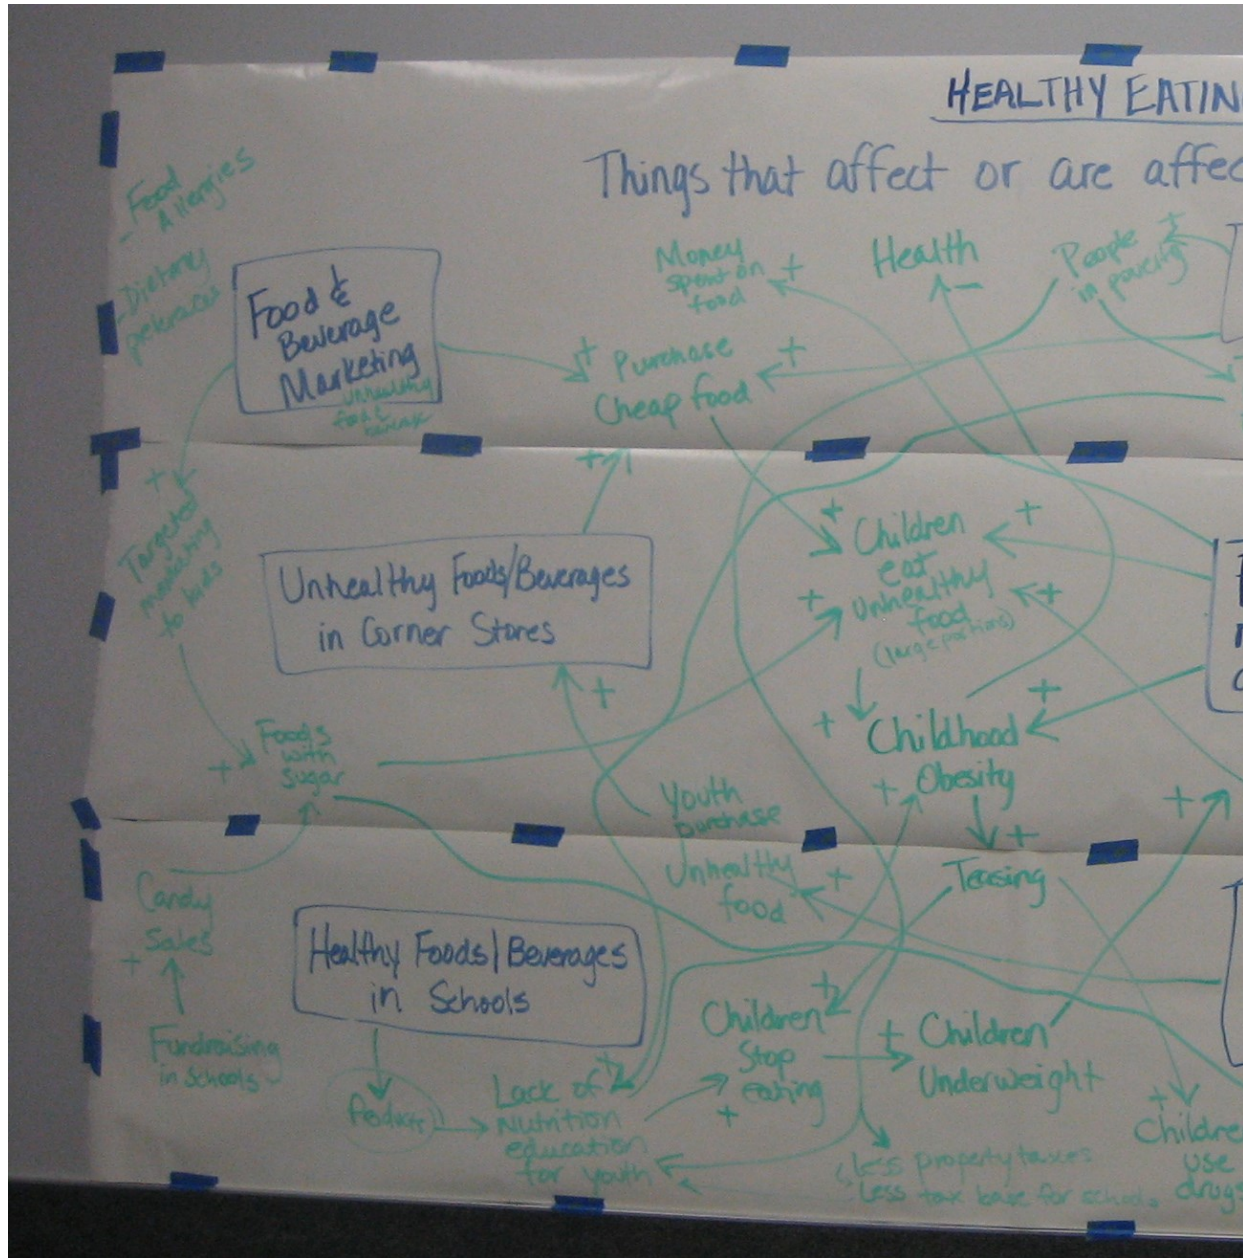 HEALTHY EATIN
Things that affect or are affec
Food
- Allergies
- Dietary
Food &
Beverage
Marketing
unhealthy
Money
spent on
food
+
Health
-
People
in
+
+
Purchase
Cheap food
+
+
+
Targeted
marketing
to kids
Unhealthy Foods/Beverages
in Corner Stores
+
Children
eat
unhealthy
food
(large portions)
+
+
+
+
Childhood
Obesity
+
+
+
Foods
with
sugar
+
Youth
purchase
Unhealthy
food
+
+
Teasing
+
Candy
Sales
+
Fundraising
in Schools
Healthy Foods/Beverages
in Schools
Lack of
Nutrition
education
for youth
+
Children
Stop
eating
+
+
+
Children
Underweight
+
less property taxes
Less tax base for school
+
Childre
use
drugs